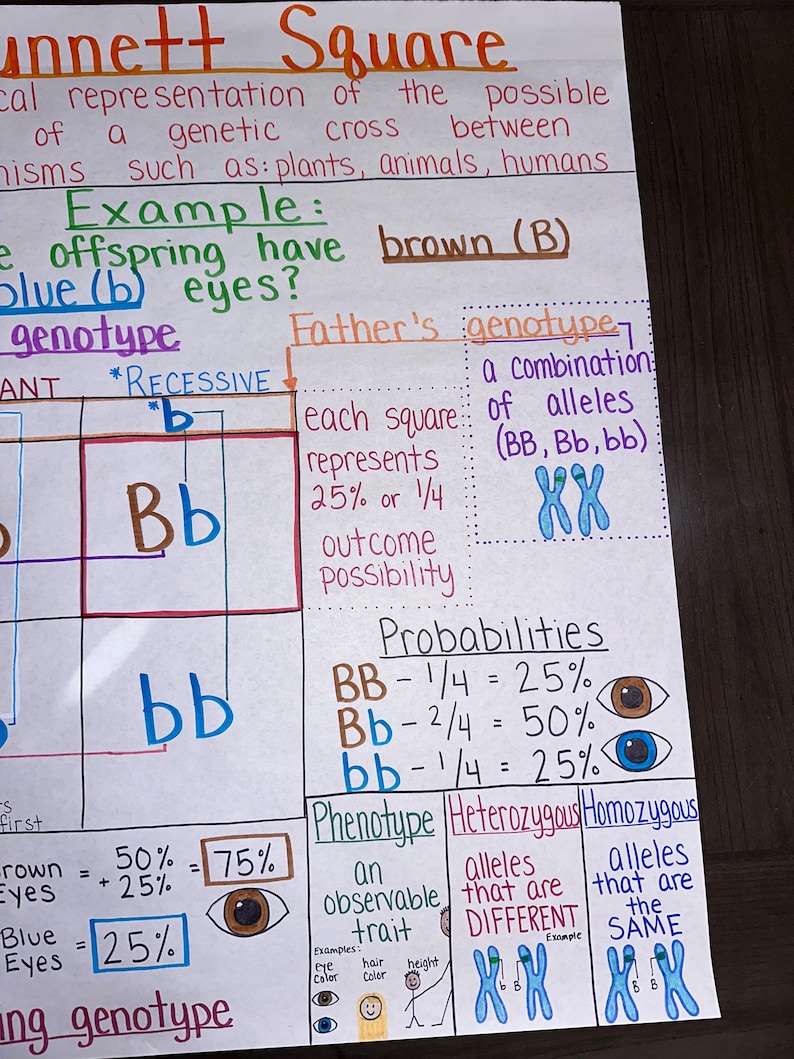 unnett Square
cal representation of the possible
of a genetic cross between
nisms such as: plants, animals, humans
Example:
e offspring have brown (B)
blue (b) eyes?
genotype
Father's genotype
ANT *RECESSIVE
*b
a combination
of alleles
(BB, Bb, bb)
each square
represents
25% or 1/4
outcome
possibility
Bb
bb
Probabilities
BB - 1/4 = 25%
Bb - 2/4 = 50%
bb - 1/4 = 25%
first
rown
Eyes
= 50%
+ 25%
= 75%
Blue
Eyes
= 25%
ing genotype
Phenotype
an
observable
trait
Examples:
eye
color
hair
color
height
Heterozygous
alleles
that are
DIFFERENT
Example
b B
Homozygous
alleles
that are
the
SAME
B B